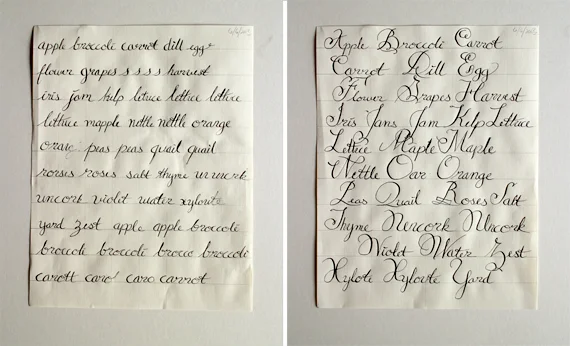 apple broccoli carrot dill egg
flower grapes s s s s harvest
iris jam kelp letruce lettice lettice
lettice mapple nettle nettle orange
orang peas peas quail quail
rorses roses salt thyme uncork
uncork violet water xylorite
yard zest apple apple broccoli
broccoli broccoli brocco broccoli
carott caro caro carrot
Apple Broccoli Carrot
Carrot Dill Egg
Flower Grapes Harvest
Iris Jans Jam Kelp Lettice
Lettice Maple Maple
Nettle Oar Orange
Peas Quail Roses Salt
Thyme Uncork
Violet Water Zest
Xylote Xylorite Yard